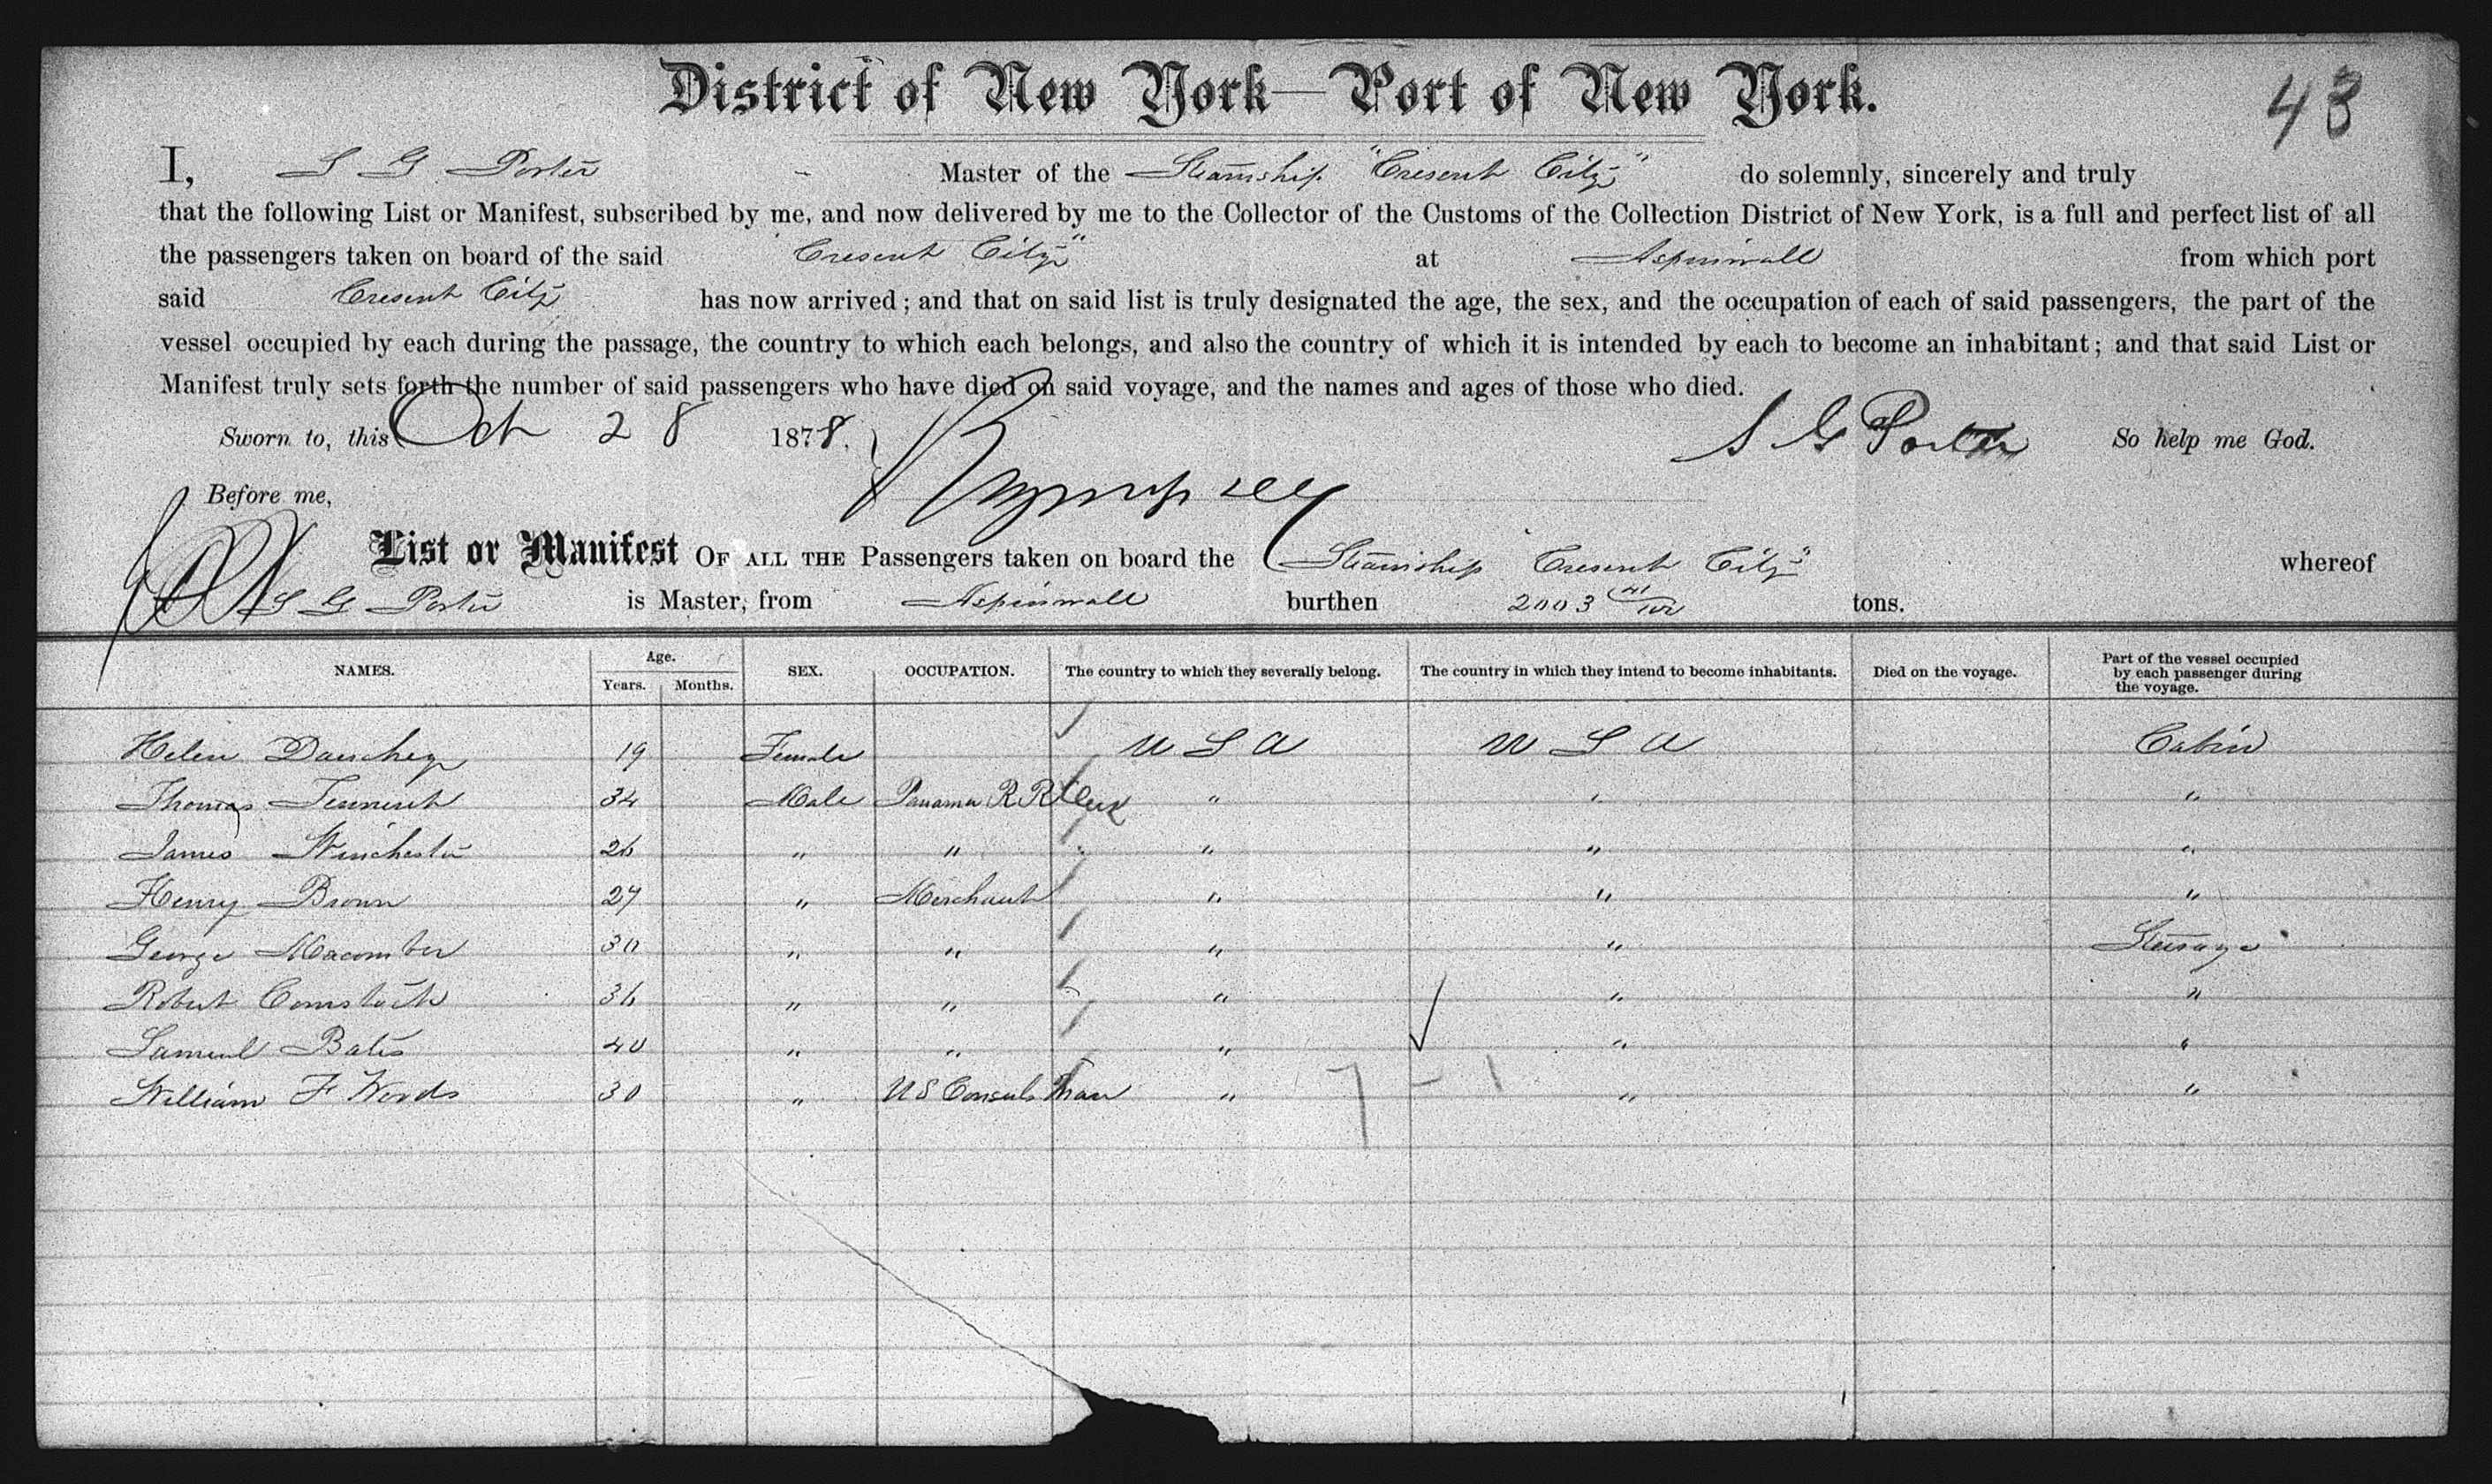 District of New York—Port of New York.
43
I, S G Porter Master of the Steamship "Cresent City" do solemnly, sincerely and truly
that the following List or Manifest, subscribed by me, and now delivered by me to the Collector of the Customs of the Collection District of New York, is a full and perfect list of all
the passengers taken on board of the said Cresent City" at Aspinwall from which port
said Cresent City has now arrived; and that on said list is truly designated the age, the sex, and the occupation of each of said passengers, the part of the
vessel occupied by each during the passage, the country to which each belongs, and also the country of which it is intended by each to become an inhabitant; and that said List or
Manifest truly sets forth the number of said passengers who have died on said voyage, and the names and ages of those who died.
Sworn to, this Oct 28 1878. S G Porter So help me God.
Before me,
List or Manifest OF ALL THE Passengers taken on board the Steamship Cresent City" whereof
S G Porter is Master, from Aspinwall burthen 2003 41/100 tons.
NAMES. Age. Years. Months. SEX. OCCUPATION. The country to which they severally belong. The country in which they intend to become inhabitants. Died on the voyage. Part of the vessel occupied by each passenger during the voyage.
Helen 19 Female U S A U S A Cabin
Thomas 34 Male Panama R R Clerk " " "
James Winchester 26 " " " " "
Henry Brown 27 " Merchant " " "
George Macomber 30 " " " " Steerage
Robert Comstock 36 " " " " "
Samuel Bates 40 " " " " "
William F Words 30 " U S Consuls man " " "
7 - 1